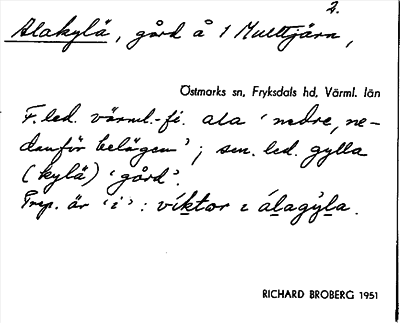 2.
Alakylä, gård å 1 Multtjärn,
Östmarks sn, Fryksdals hd, Värml. län
F. led. värml.-fi. ala 'nedre, ne-
danför belägen'; sen. led. gylla
(kylä) 'gård'.
Prep. är 'i': víktor i álagýla.
RICHARD BROBERG 1951